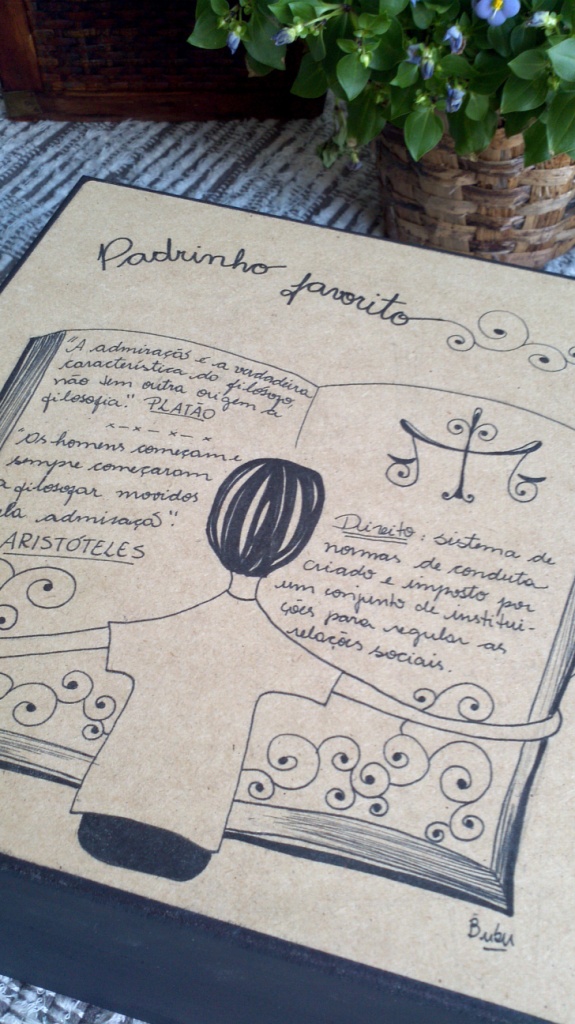 Padrinho favorito
"A admiração é a verdadeira
característica do filósofo,
não tem outra origem a
filosofia." PLATÃO
"Os homens começam e
sempre começaram
a filosofar movidos
ela admiração".
ARISTÓTELES
Direito: sistema de
normas de conduta
criado e imposto por
um conjunto de institui-
ções para regular as
relações sociais.
Bubu